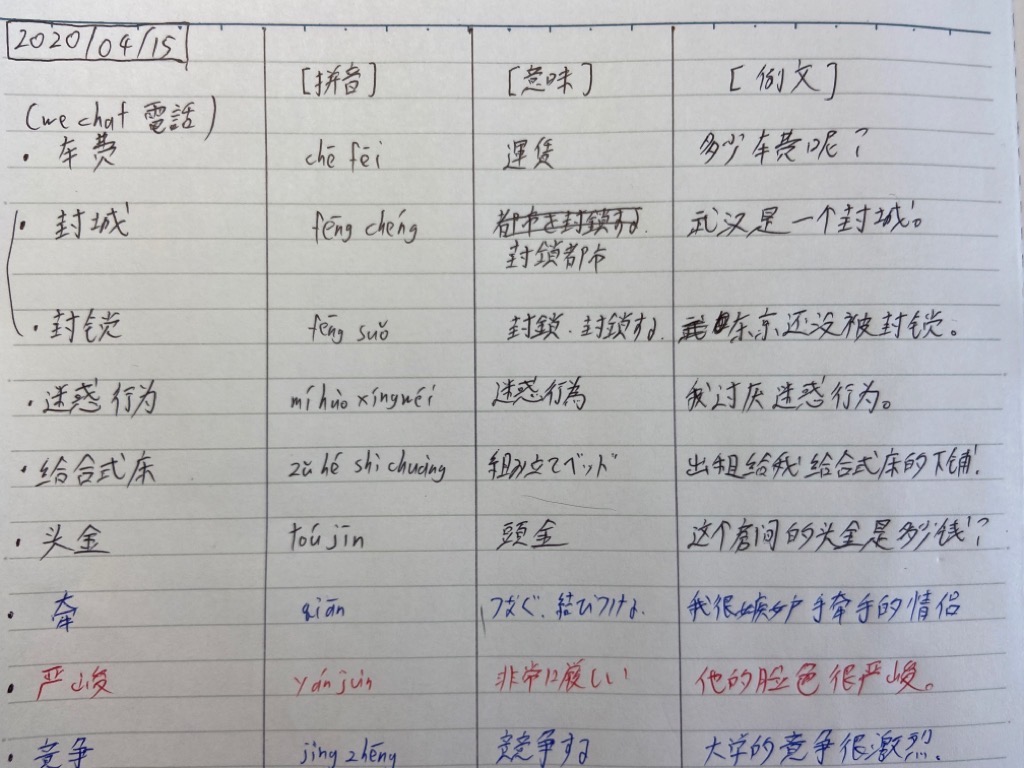 2020/04/15
[拼音] [意味] [例文]
(we chat 電話)
・车费 chē fēi 運賃 多少车费呢?
・封城 fēng chéng 都市を封鎖する. 武汉是一个封城。
封鎖都市
・封锁 fēng suǒ 封鎖.封鎖する. 东京还没被封锁。
・迷惑行为 míhùo xíngwéi 迷惑行為 我讨厌迷惑行为。
・给合式床 zǔ hé shì chuáng 組み立てベッド 出租给我给合式床的下铺.
・头金 toú jīn 頭金 这个房间的头金是多少钱?
・牵 qiān つなぐ、結びつける. 我很嫉妒手牵手的情侣
・严峻 yán jùn 非常に厳しい 他的脸色很严峻。
・竞争 jìng zhēng 競争する 大学的竞争很激烈.